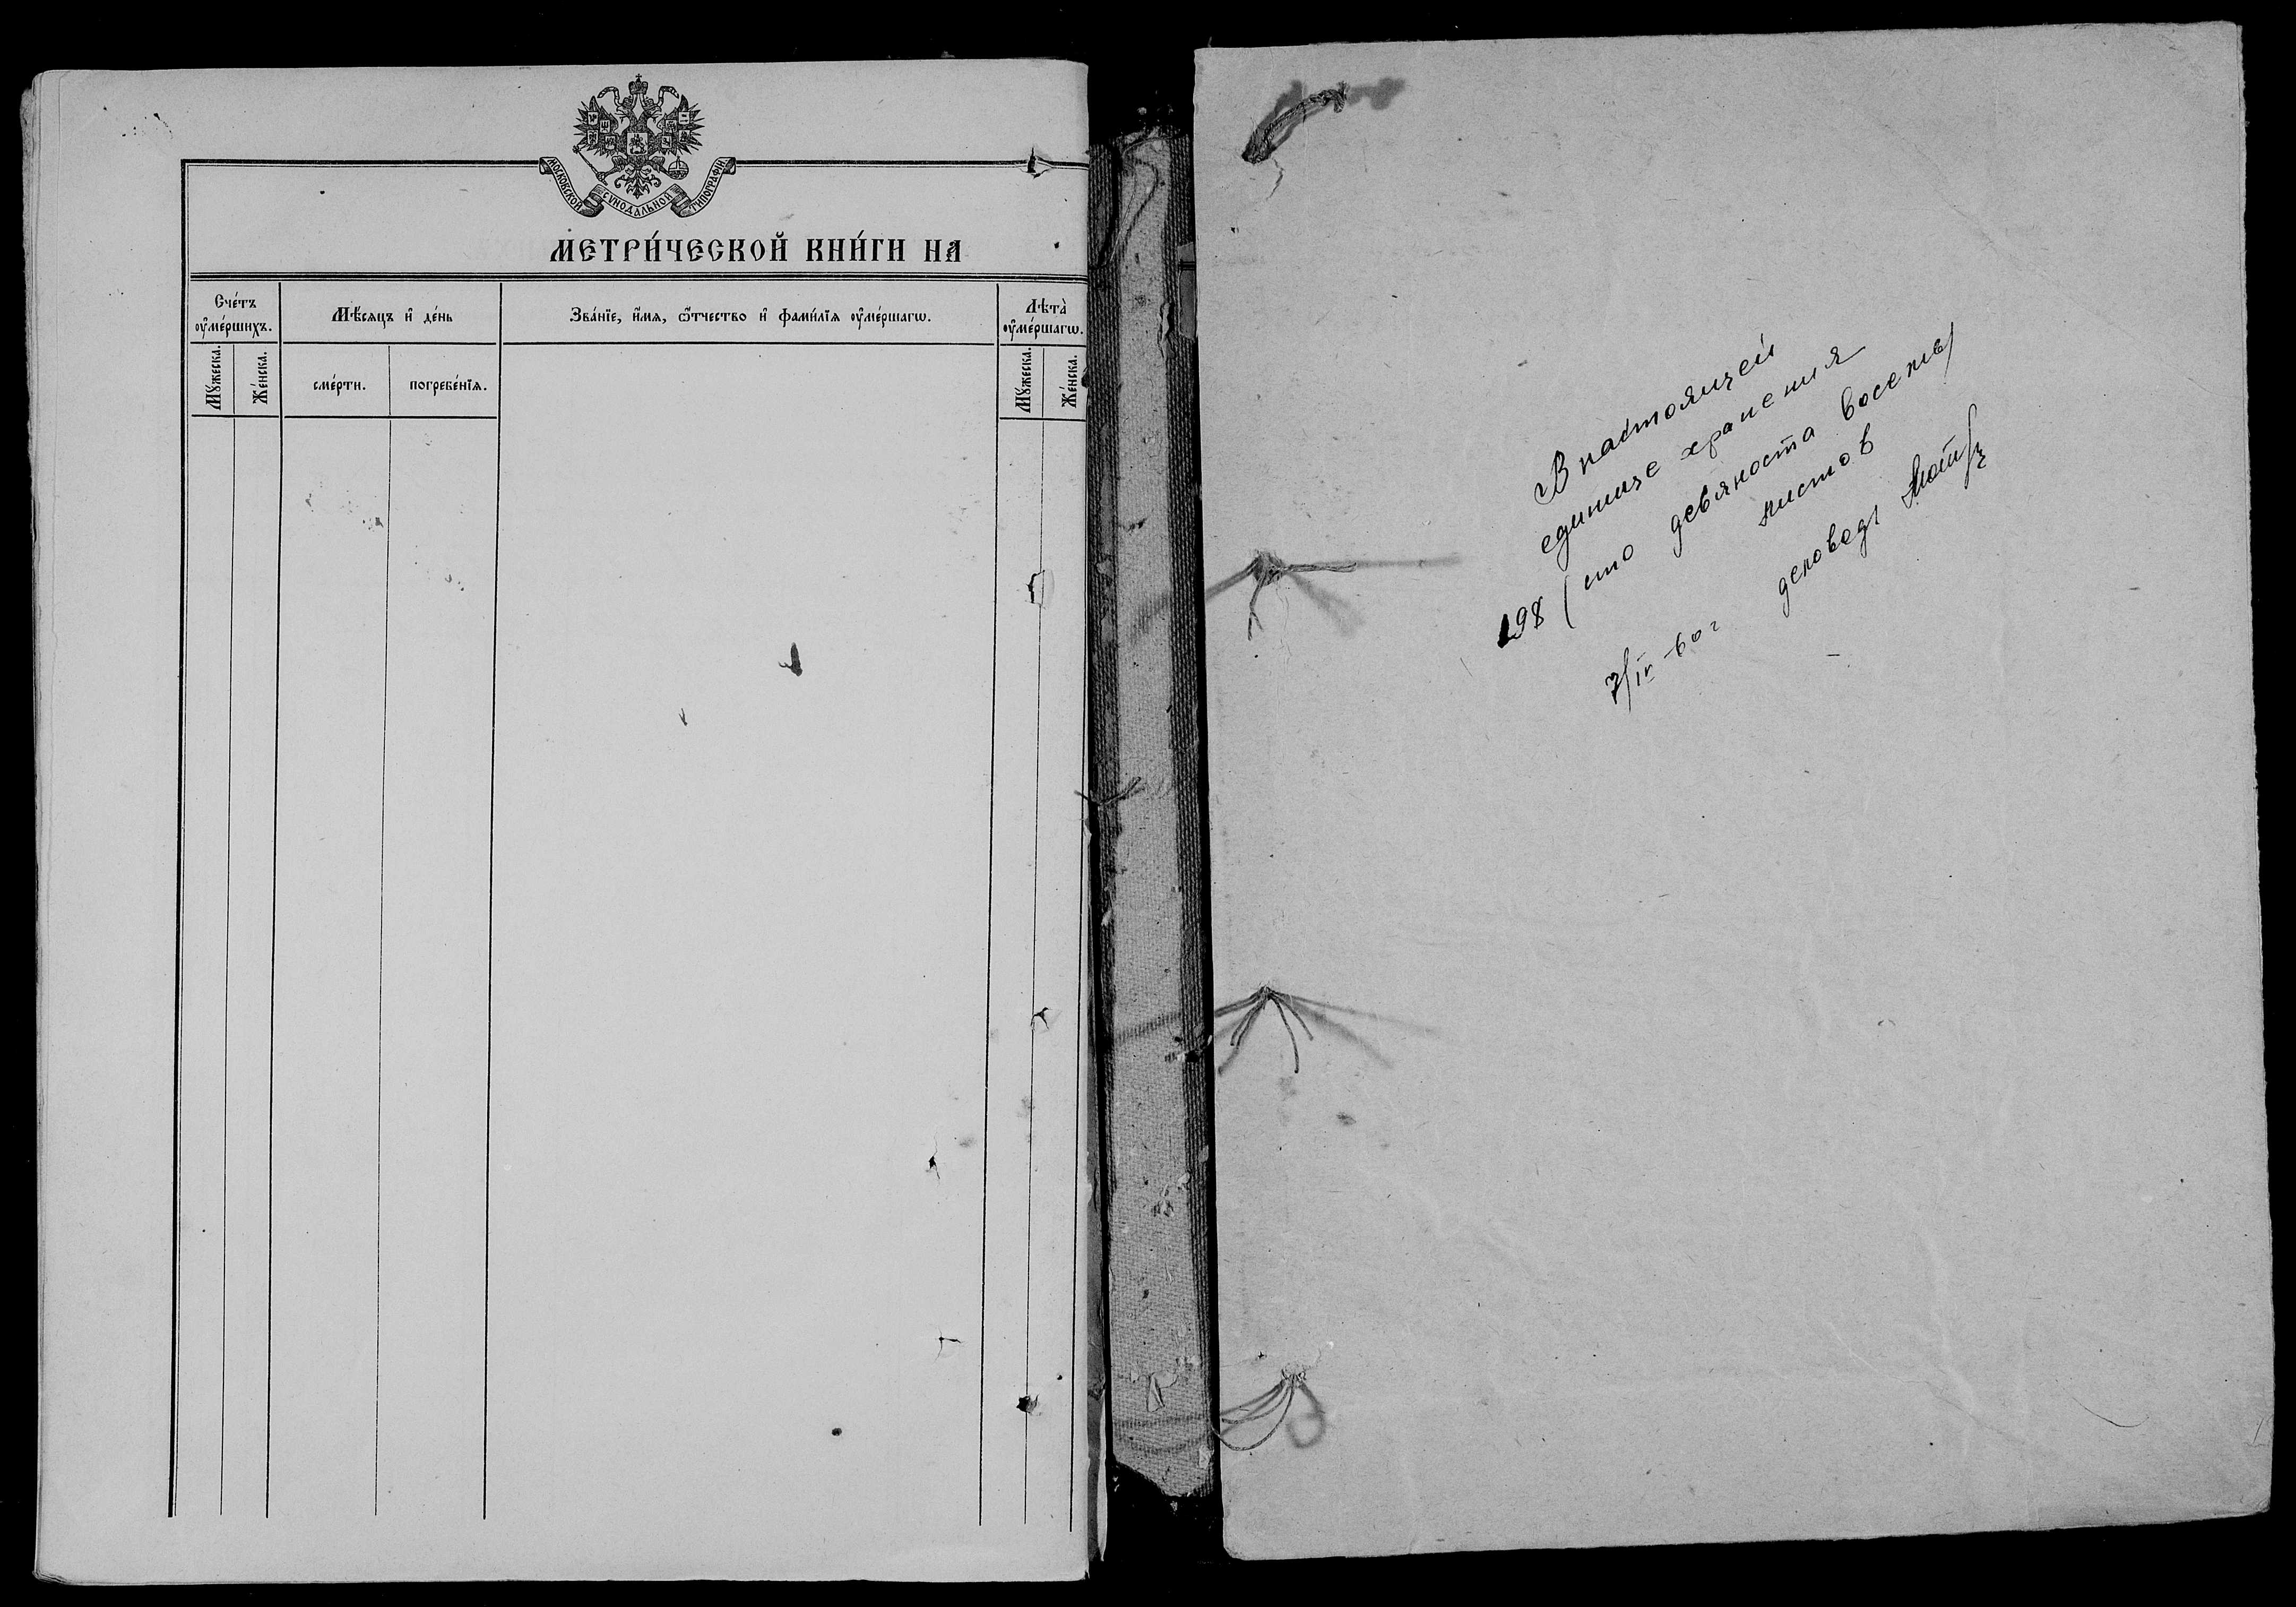 МОСКОВСКОЙ СУНОДАЛЬНОЙ ТИПОГРАФІИ
МЕТРИ́ЧЕСКОЙ КНИ́ГИ НА
Сче́тъ
оу҆ме́ршихъ.
Мѣ́сяцъ и҆ де́нь
Зва́нїе, и҆́мя, ѻ҆́тчество и҆ фами́лїя оу҆ме́ршагѡ.
Лѣта̀
оу҆ме́ршагѡ.
Мꙋ́жеска.
Же́нска.
сме́рти.
погребе́нїя.
Мꙋ́жеска.
Же́нска.
В настоящей
единице хранения
198 (сто девяноста восемь)
листов
7/IV-60 г деловод